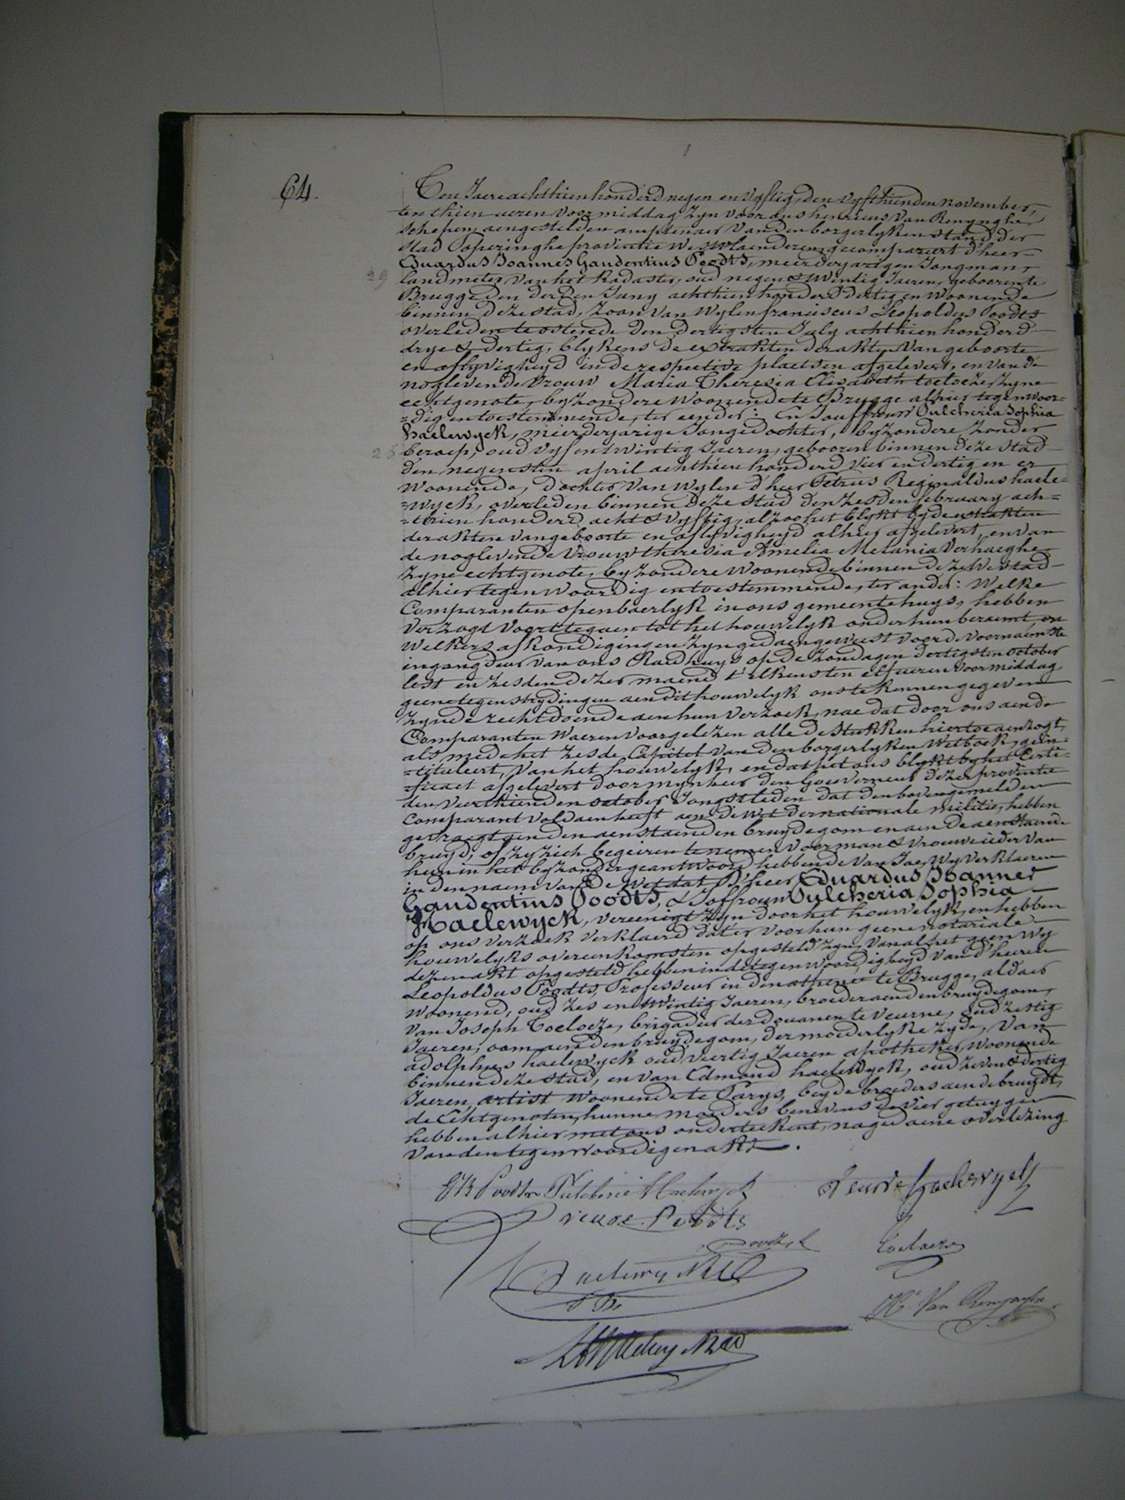 64.
Ten Jaere achthien honderd negen en vyftig, den vyfthienden november,
ten thien ueren voormiddag zyn voor ons henricus Van Renynghe,
schepen, aengestelden amptenaer van den borgerlyken stand der
stad Poperinghe provintie Westvlaenderen gecompareert d'heer
Eduardus Joannes Gaudentius Poodts, meerderjarigen Jongman,
29 landmeter van het Kadaster, oud negen & twintig Jaeren, geboren te
Brugge den derden Juny achthien honderd dertig en woonende
binnen deze stad, zoon van wylen franciscus Leopoldus Poodts
overleden te ostende den dertigsten July achthien honderd
drye & dertig, blykens de extrakten der akten van geboorte
en aflyvigheyd in de respective plaetsen afgelevert, en van de
noglevende vrouw Maria Theresia Elisabeth toeloeze, zyne
echtgenote, byzondere woonende te Brugge alhier tegenwoor=
=dig en toestemmende, ter eender: En Jouffrouw Pulcheria Sophia
haelewyck, meerderjarige Jongedochter, byzondere zonder
25 beroep, oud vyf en twintig Jaeren, geboren binnen deze stad
den negensten april achthien honderd vier en dertig en er
woonende, dochter van wylen d'heer Petrus Reginaldus haele=
=wyck, overleden binnen deze stad den zesden february ach=
=thien honderd acht & vyftig, alzoo het blykt by de extrakten
der akten van geboorte en aflyvigheyd alhier afgelevert, en van
de noglevende vrouw theresia Amelia Melania Verhaeghe
zyne echtgenote, byzondere woonende binnen deze stad
alhier tegenwoordig en toestemmende, ter ander: Welke
Comparanten openbaerlyk in ons gemeentehuys, hebben
verzogt voort te gaen tot het houwelyk onder hun beraemt, en
welkers afkondigingen zyn gedaen geweest voor de voornaemste
ingangdeur van ons Raedhuys op de zondagen dertigsten october
lest en zesden dezer maend t'elkensten elf ueren voormiddag
geene tegenstrydingen aen dit houwelyk ons te kennen gegeven
zynde recht doende aen hun verzoek, nae dat door ons aen de
Comparanten waeren voorgelezen alle de stukken hiertoe aenzogt,
als mede het zesde Capitel van den borgerlyken Wetboek, geïn=
=tituleert, van het houwelyk, en dat het ons blykt by het Certi=
=ficaet afgelevert door mynheer den Gouverneur dezer provintie
den veerthienden october Jongstleden dat den bovengemelden
Comparant voldaen heeft aen de wet der nationale militie, hebben
gevraegt aen den aenstaenden bruydegom en aen de aenstaende
bruyd, of zy zich begeiren te nemen voor man & vrouw: ieder van
hun in het byzonder geantwoord hebbende van Jae, wy verklaeren
in den naem van de wet dat d'heer Eduardus Joannes
Gaudentius Poodts, & Jouffrouw Pulcheria Sophia
Haelewyck, vereenigt zyn door het houwelyk, en hebben
op ons verzoek verklaerd dat er voor hun geene notariale
houwelyks overeenkomsten opgesteld zyn, van al het geen wy
dezen akt opgesteld hebben in de tegenwoordigheyd van d'heeren
Leopoldus Poodts, Professeur in den athenee te Brugge, aldaer
woonend, oud zes en twintig Jaeren, broeder aen den bruydegom,
van Joseph Toeloeze, brigadier der douanen te Veurne, oud zestig
Jaeren, oom aen den bruydegom, der moederlyke zyde, van
adolphus haelewyck oud veertig Jaeren apotheker, woonende
binnen deze stad, en van Edmond haelewyck, oud zeven & dertig
Jaeren, artist woonende te Parys, beyde broeders aen de bruydt,
de Echtgenoten, hunne moeders benevens de vier getuygen
hebben alhier met ons onderteekent, nae gedaene overlezing
van den tegenwoordigen akt.
Poodts Pulcherie Haelewyck
veuve haelewyck
veuve Poodts
Poodts L
Toeloeze
Haelewyck
H. Van Renynghe
Haelewyck